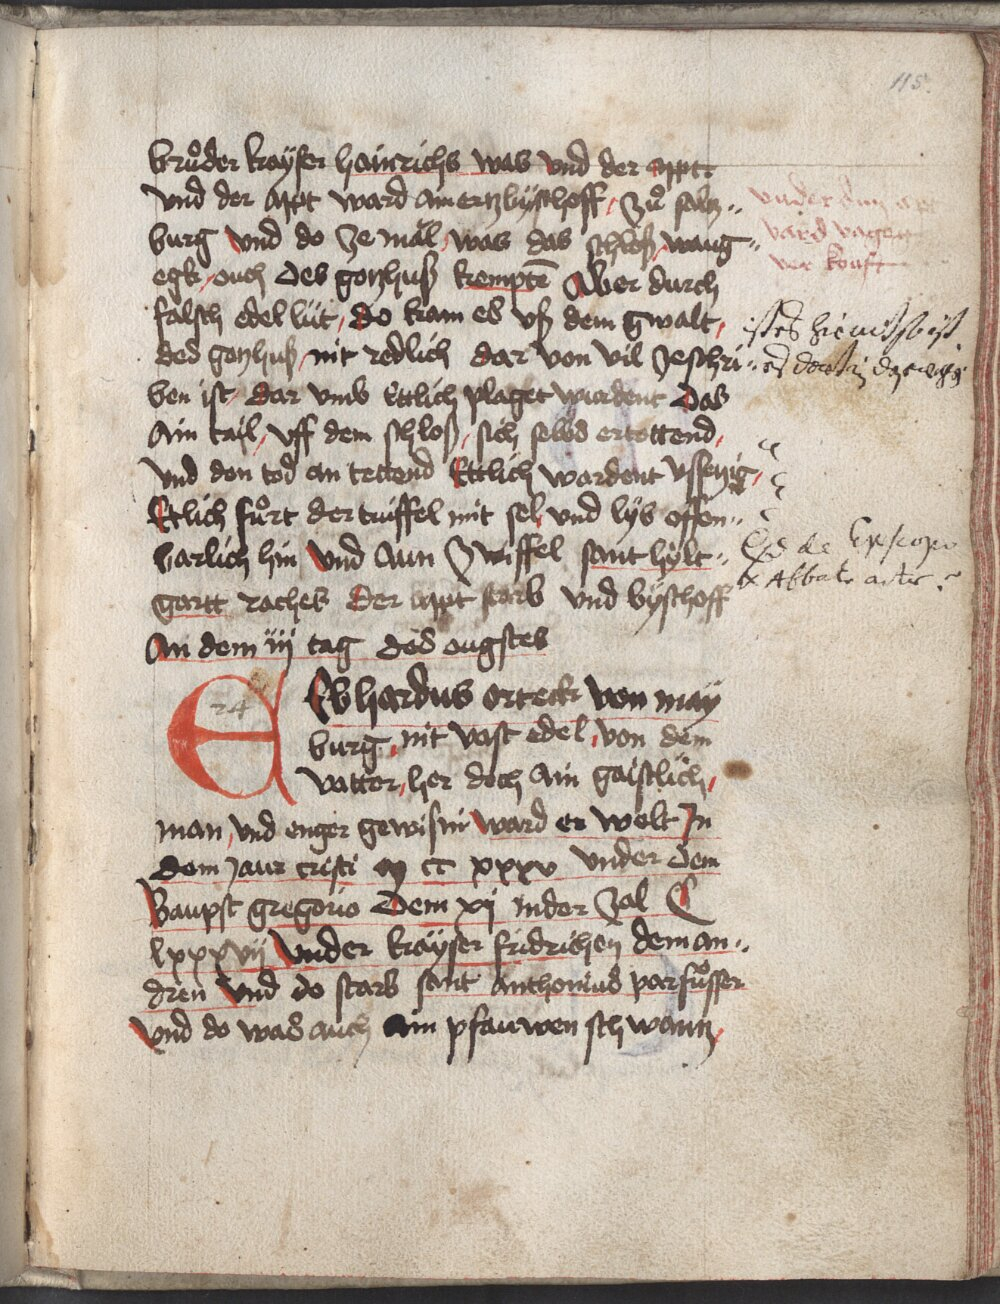 115.
brůder kayser hainrichs was vnd der appt
vnd der appt ward ain ertzbyschoff zů saltz„
burg vnd do ze mal was das schloß wang„
egk ouch des gotzhuß kempte Aber durch
falsch edel lüt do kam es vß dem gwalt
des gotzhuß nit redlich dar von vil geschri„
ben ist dar vmb Ettlich plaget wurdent Das
Ain tail vff dem schloß sich selbs ertottend
vnd den tod an tettend Ettlich wurdent vssetzig
Etlich fůrt der tuiffel mit sel vnd lyb offen„
barlich hin vnd aun zwiffel sant hylt„
gartt raches Der appt starb vnd byschoff
An dem iij tag des ougstes
24
Ebhardus orteck von may
burg nit vast edel von dem
vatter her doch ain gaistlich
man vnd enger gewisni ward er welt In
dem Jaur cristi m cc xxxv vnder dem
Baupst gregorio Dem xj in der zal C
lxxxvij vnder kayser fridrichen dem an„
dren vnd do starb sant Anthonius parfůsser
vnd do was auch ain pfauwen schwantz
vnder dem
ward wagen
ver kouft
de Episcopo
& Abbate